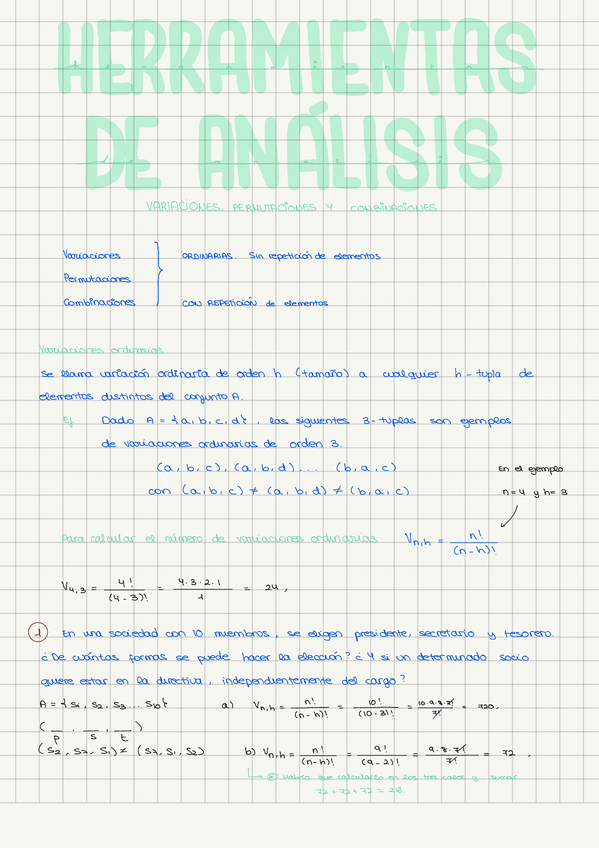 HERRAMIENTAS
DE ANÁLISIS
VARIACIONES, PERMUTACIONES Y COMBINACIONES
Variaciones
ORDINARIAS. Sin repetición de elementos
Permutaciones
Combinaciones
CON REPETICIÓN de elementos
Variaciones ordinarias
Se llama variación ordinaria de orden h (tamaño) a cualquier h-tupla de
elementos distintos del conjunto A.
Ej Dado A = {a, b, c, d}, las siguientes 3-tuplas son ejemplos
de variaciones ordinarias de orden 3.
(a, b, c), (a, b, d) ... (b, a, c)
con (a, b, c) ≠ (a, b, d) ≠ (b, a, c)
En el ejemplo
n=4 y h=3
Para calcular el número de variaciones ordinarias Vn,h = n! / (n-h)!
V4,3 = 4! / (4-3)! = 4·3·2·1 / 1 = 24,
1 En una sociedad con 10 miembros, se eligen presidente, secretario y tesorero.
¿De cuántas formas se puede hacer la elección? ¿Y si un determinado socio
quiere estar en la directiva, independientemente del cargo?
A = {S1, S2, S3 ... S10} a) Vn,h = n! / (n-h)! = 10! / (10-3)! = 10·9·8·7! / 7! = 720.
( _ , _ , _ )
p s t
(S2, S7, S1) ≠ (S7, S1, S2) b) Vn,h = n! / (n-h)! = 9! / (9-2)! = 9·8·7! / 7! = 72,
Habría que calcularlo en los tres casos y sumar
72+72+72 = 216.